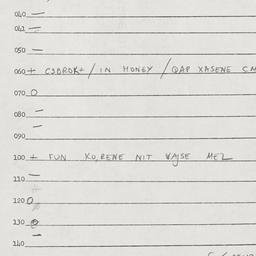 040 —
042 —
050 —
060 + CSBROK+ / IN HONEY / QAP XASENE
070 O
080 —
090 —
100 + FUN KO,RENE NIT WAJSE MEL
110 —
120 O
130 O
140 —